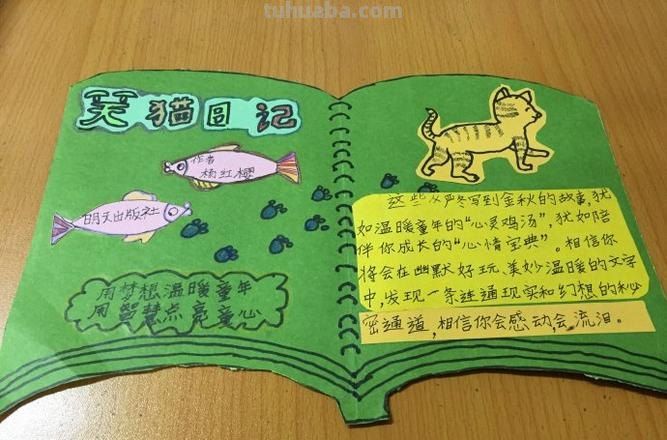 tuhuaba.com
笑猫日记
作者
杨红樱
明天出版社
用梦想温暖童年
用智慧点亮童心
这些从严冬写到金秋的故事,犹
如温暖童年的“心灵鸡汤”,犹如陪
伴你成长的“心情宝典”。相信你
将会在幽默好玩、美妙温暖的文字
中,发现一条连通现实和幻想的秘
密通道,相信你会感动,会流泪。